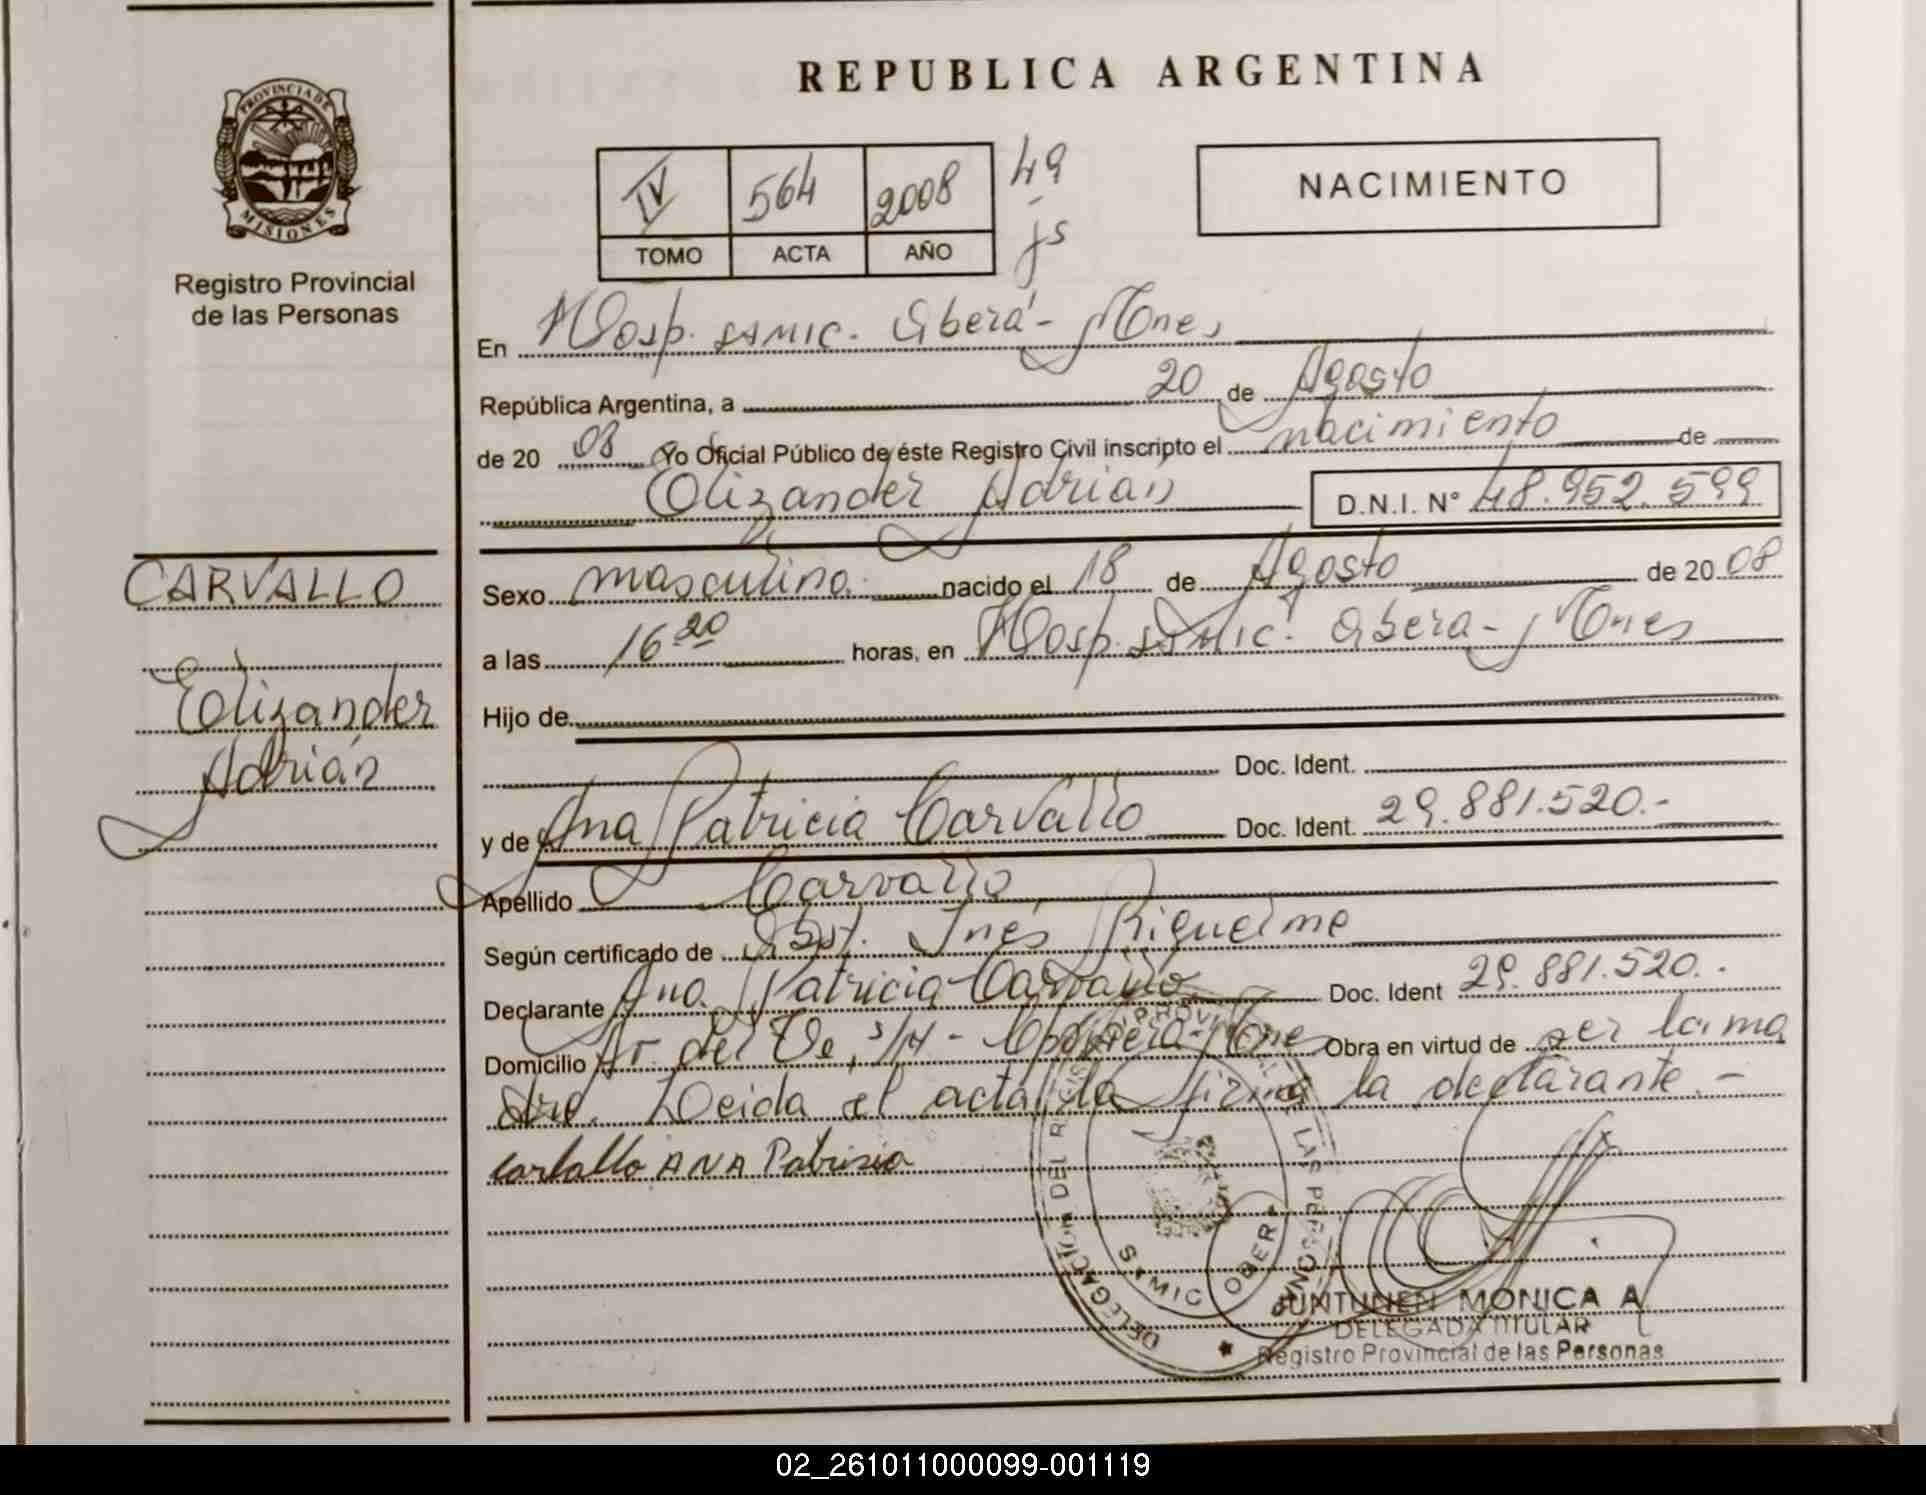 REPUBLICA ARGENTINA
PROVINCIA DE MISIONES
Registro Provincial
de las Personas
IV 564 2008 49
TOMO ACTA AÑO js
NACIMIENTO
En Hosp. SAMIC. Oberá - Mnes
República Argentina, a 20 de Agosto
de 20 08 Yo Oficial Público de éste Registro Civil inscripto el nacimiento de
Elizander Adrián D.N.I. N° 48.952.599
CARVALLO
Elizander
Adrián
Sexo masculino. nacido el 18 de Agosto de 20 08
a las 16 20 horas, en Hosp. SAMIC. Oberá - Mnes
Hijo de
Doc. Ident.
y de Ana Patricia Carvallo Doc. Ident. 29.881.520.-
Apellido Carvallo
Según certificado de Obst. Inés Riquelme
Declarante Ana Patricia Carvallo Doc. Ident 29.881.520.-
Domicilio Ar. del Ve, s/N - Obra en virtud de ser la ma
dre. Leída el acta la firma la declarante.-
Carballo ANA Patrisia
DELEGACION DEL REGISTRO PROVINCIAL DE LAS PERSONAS
SAMIC OBERA
JUNTUNEN MONICA A
DELEGADA TITULAR
Registro Provincial de las Personas
02_261011000099-001119